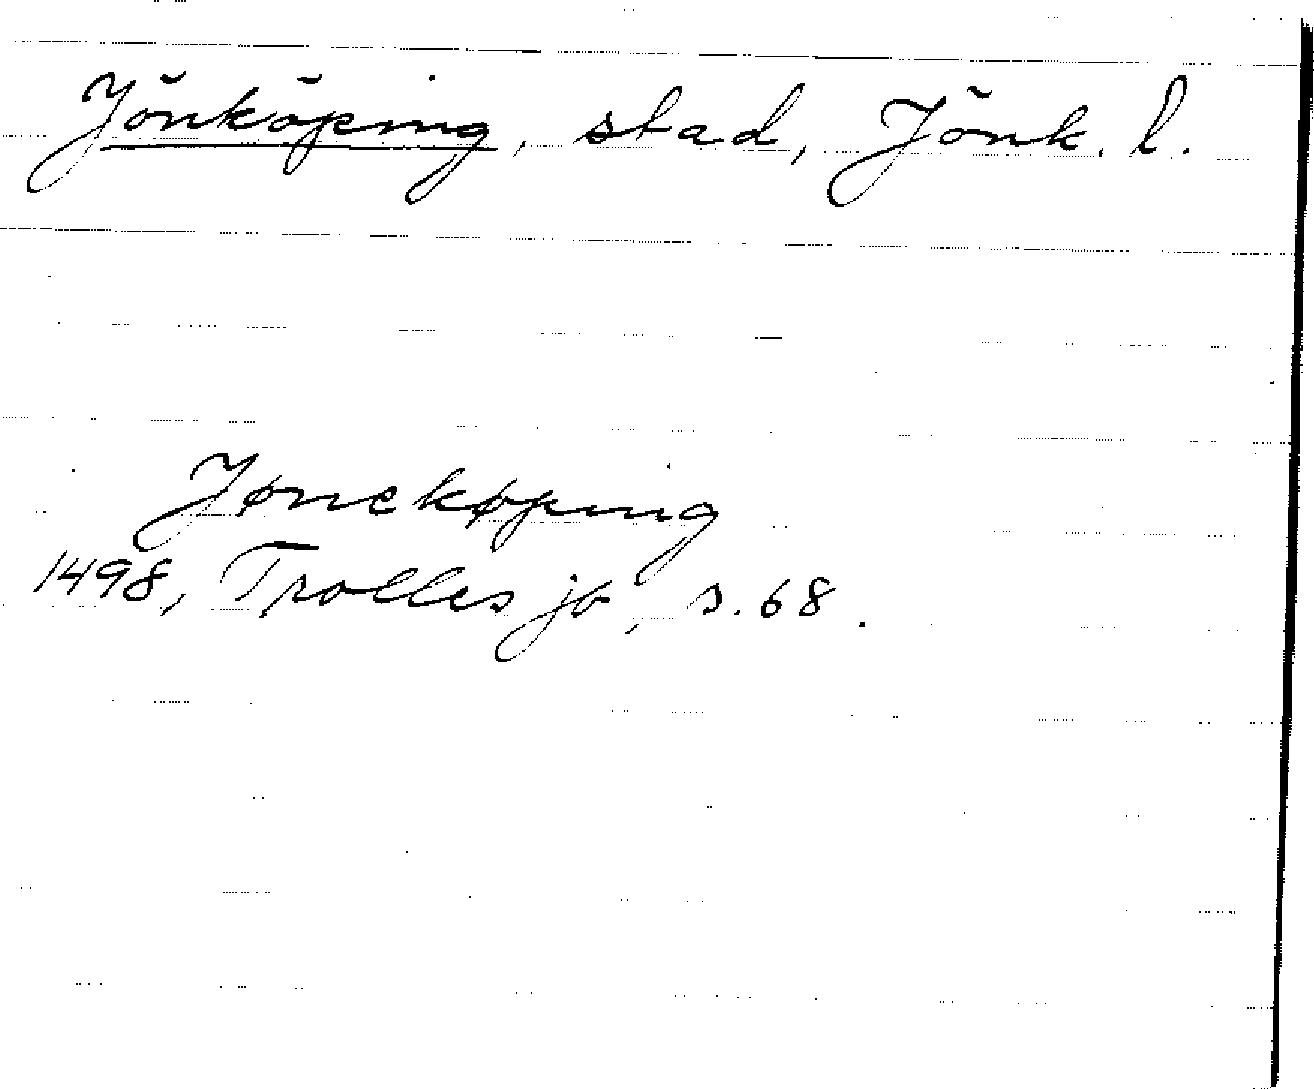 Jönköping, stad, Jönk. l.
Jønekøping
1498, Trolles jb, s. 68.